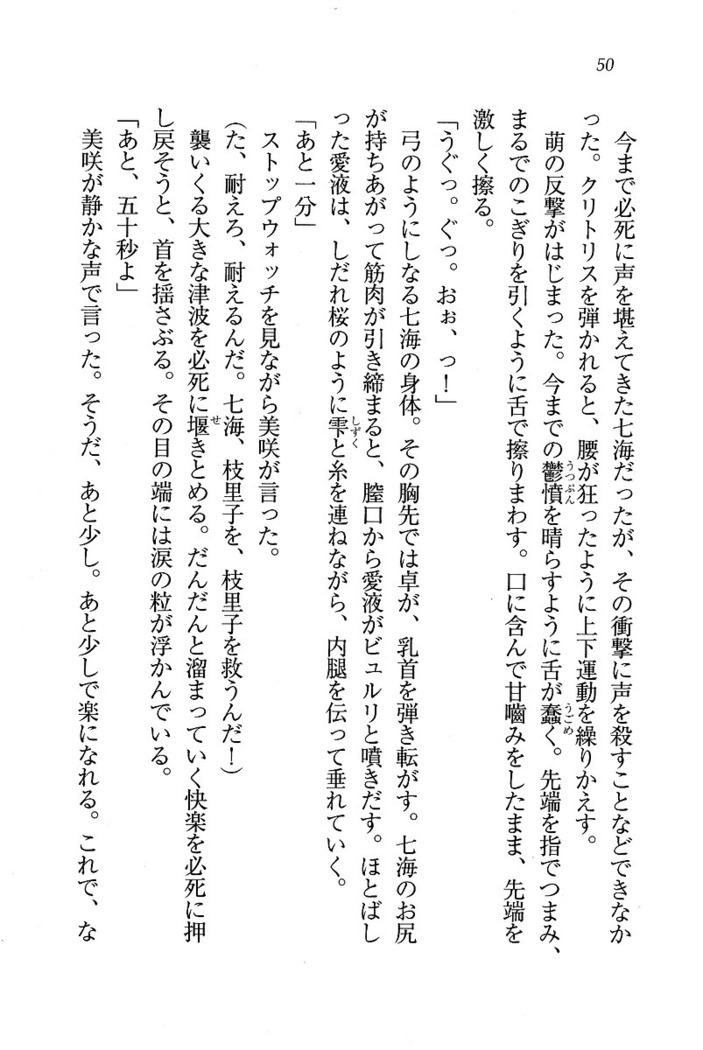 50
今まで必死に声を堪えてきた七海だったが、その衝撃に声を殺すことなどできなか
った。クリトリスを弾かれると、腰が狂ったように上下運動を繰りかえす。
萌の反撃がはじまった。今までの鬱憤を晴らすように舌が蠢く。先端を指でつまみ、
まるでのこぎりを引くように舌で擦りまわす。口に含んで甘嚙みをしたまま、先端を
激しく擦る。
「うぐっ。ぐっ。おぉ、っ！」
弓のようにしなる七海の身体。その胸先では卓が、乳首を弾き転がす。七海のお尻
が持ちあがって筋肉が引き締まると、膣口から愛液がビュルリと噴きだす。ほとばし
った愛液は、しだれ桜のように雫と糸を連ねながら、内腿を伝って垂れていく。
「あと一分」
ストップウォッチを見ながら美咲が言った。
（た、耐えろ、耐えるんだ。七海、枝里子を、枝里子を救うんだ！）
襲いくる大きな津波を必死に堰きとめる。だんだんと溜まっていく快楽を必死に押
し戻そうと、首を揺さぶる。その目の端には涙の粒が浮かんでいる。
「あと、五十秒よ」
美咲が静かな声で言った。そうだ、あと少し。あと少しで楽になれる。これで、な